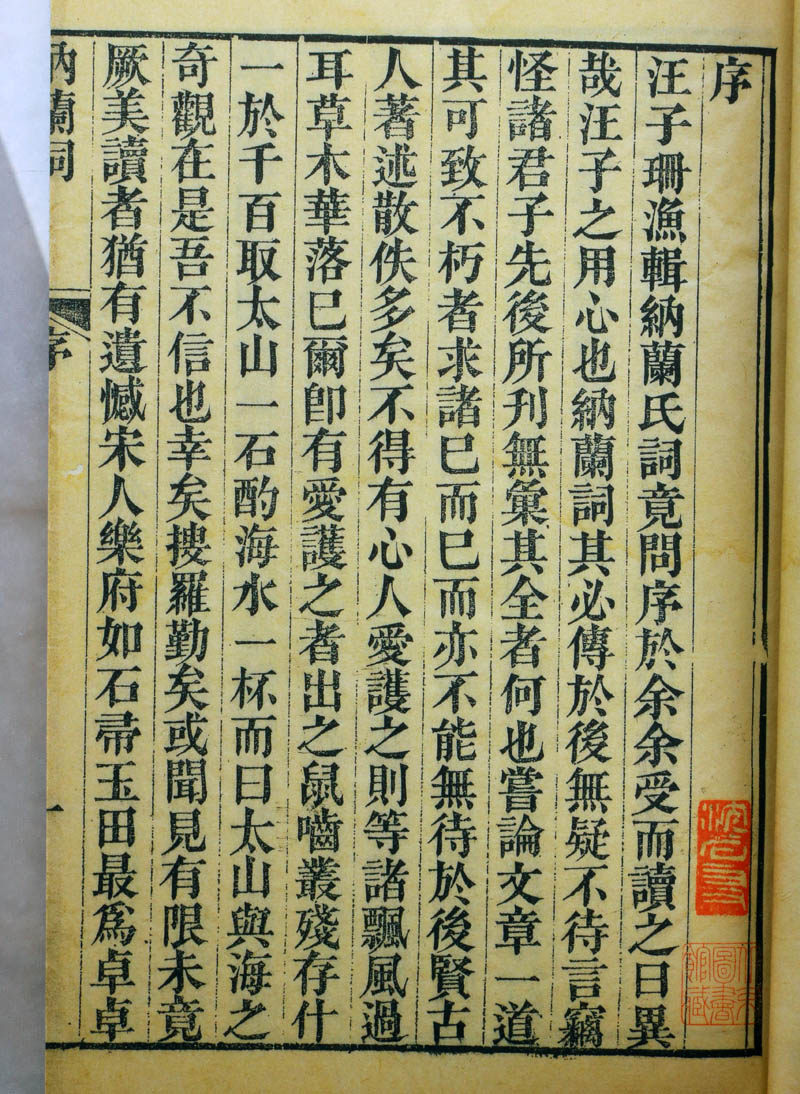 序
汪子珊漁輯納蘭氏詞竟問序於余余受而讀之曰異
哉汪子之用心也納蘭詞其必傳於後無疑不待言竊
怪諸君子先後所刋無彙其全者何也嘗論文章一道
其可致不朽者求諸巳而巳而亦不能無待於後賢古
人著述散佚多矣不得有心人愛護之則等諸飄風過
耳草木華落巳爾卽有愛護之者出之鼠嚙叢殘存什
一於千百取太山一石酌海水一杯而曰太山與海之
奇觀在是吾不信也幸矣搜羅勤矣或聞見有限未竟
厥美讀者猶有遺憾宋人樂府如石帚玉田最爲卓卓
納蘭詞
序
一